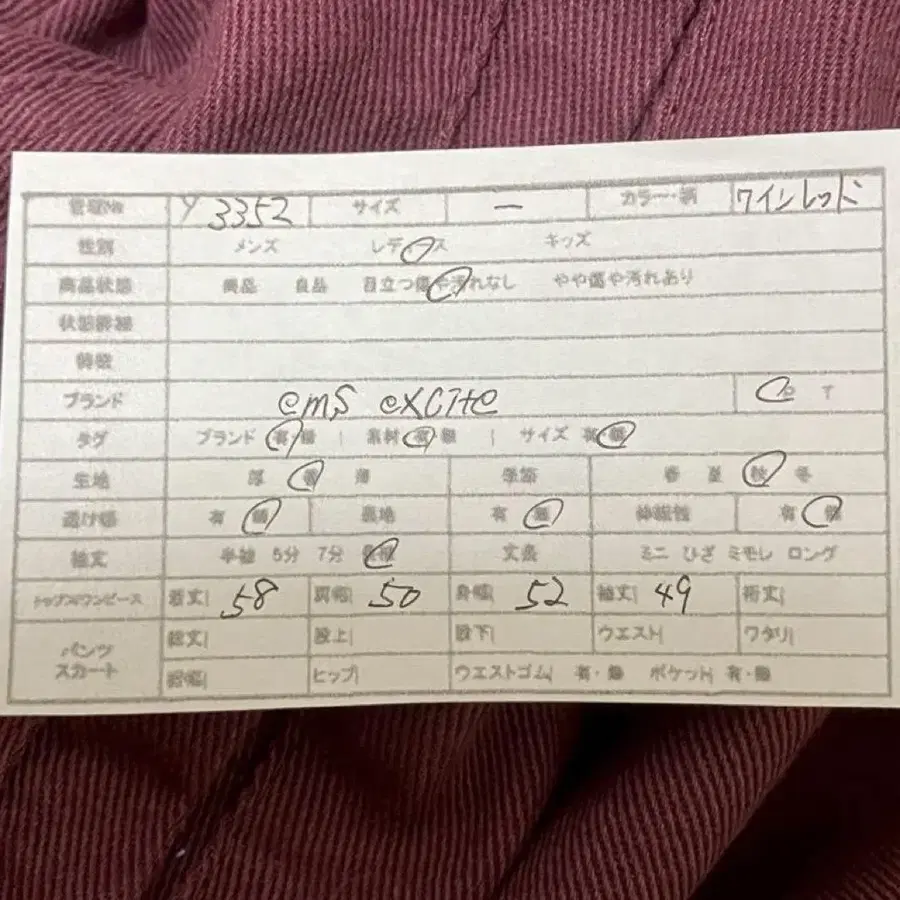 管理No Y 3352 サイズ — カラー・柄 ワインレッド
性別 メンズ レディース キッズ
商品状態 美品 良品 目立つ傷や汚れなし やや傷や汚れあり
状態詳細
特徴
ブランド ems excite
タグ ブランド 有・無 | 素材 有・無 | サイズ 有・無
生地 厚 普 薄 季節 春 夏 秋 冬
透け感 有 無 裏地 有 無 伸縮性 有 無
袖丈 半袖 5分 7分 長袖 丈感 ミニ ひざ ミモレ ロング
トップス/ワンピース 着丈| 58 肩幅| 50 身幅| 52 袖丈| 49 裄丈|
パンツ スカート 総丈| 股上| 股下| ウエスト| ワタリ|
裾幅| ヒップ| ウエストゴム| 有・無 ポケット| 有・無